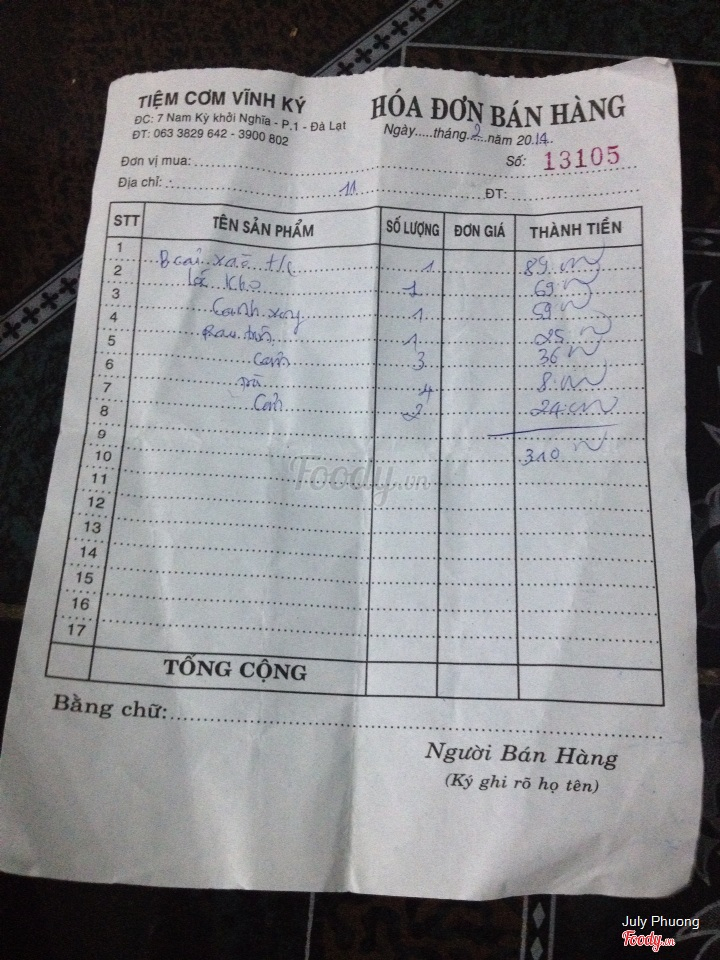 TIỆM CƠM VĨNH KÝ
ĐC: 7 Nam Kỳ khởi Nghĩa - P.1 - Đà Lạt
ĐT: 063 3829 642 - 3900 802
HÓA ĐƠN BÁN HÀNG
Ngày.....tháng 2 năm 2014
Số: 13105
Đơn vị mua:
Địa chỉ: 11 ĐT:
STT TÊN SẢN PHẨM SỐ LƯỢNG ĐƠN GIÁ THÀNH TIỀN
1 xào 1 89
2 lóc kho 1 69
3 Canh 1 59
4 Rau 1 25
5 Cơm 3 36
6 trà 4 8
7 2 24
8
9 310
10
11
12
13
14
15
16
17
TỔNG CỘNG
Bằng chữ:
Người Bán Hàng
(Ký ghi rõ họ tên)
Foody.vn
July Phuong
Foody.vn